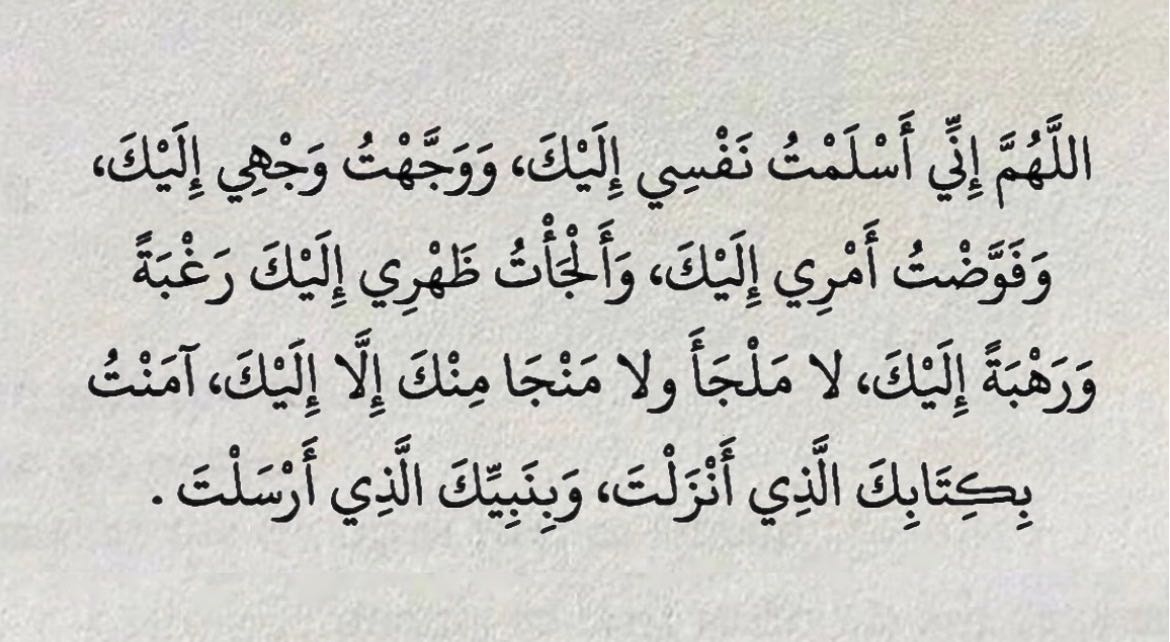 اللَّهُمَّ إِنِّي أَسْلَمْتُ نَفْسِي إِلَيْكَ، وَوَجَّهْتُ وَجْهِي إِلَيْكَ،
وَفَوَّضْتُ أَمْرِي إِلَيْكَ، وَأَلْجَأْتُ ظَهْرِي إِلَيْكَ رَغْبَةً
وَرَهْبَةً إِلَيْكَ، لا مَلْجَأَ ولا مَنْجَا مِنْكَ إِلَّا إِلَيْكَ، آمَنْتُ
بِكِتَابِكَ الَّذِي أَنْزَلْتَ، وَبِنَبِيِّكَ الَّذِي أَرْسَلْتَ .